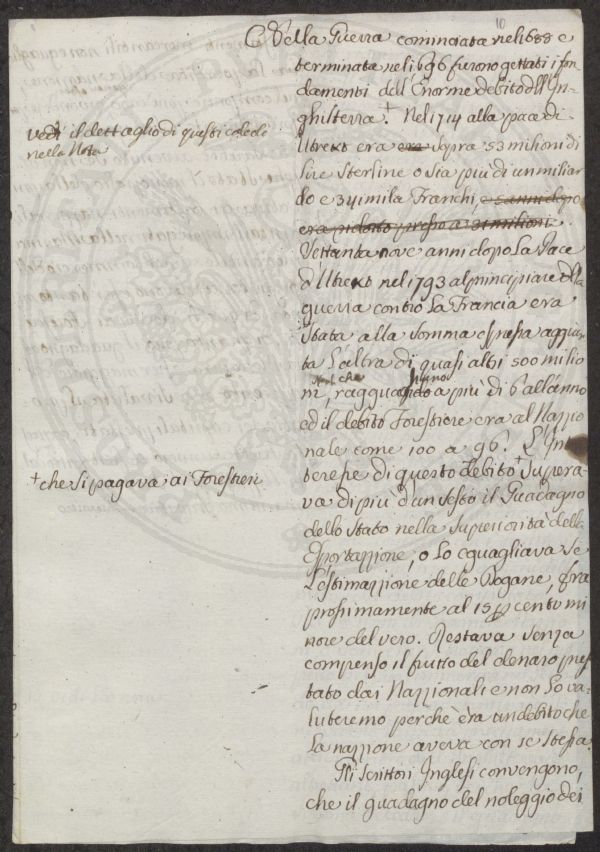 10
Della Guerra cominciata nel 1688 e
terminata nel 1696 furono gettati i fon-
damenti dell'Enorme debito dll'In-
ghilterra. + Nel 1714 alla pace di
Utrext era era sopra 53 milioni di
lire Sterline o sia più di un miliar
do e 341 mila Franchi, e 8 anni dopo
era ridotto presso a 31 milioni.
Settanta nove anni dopo La Pace
d'Utrext nel 1793 al principiare dlla
guerra contro La Francia era
Stata alla Somma espressa aggiun-
ta L'altra di quasi altri 500 milio
ni, che ragguagliano a più di 6 all'anno
ed il debito Forestiere era al Nazio
nale come 100 a 96. L'In
teresse di questo debito + Supera-
va di più d'un Sesto il Guadagno
dello Stato nella Superiorità della
Esportazzione, o Lo eguagliava Se
L'estimazzione delle Dogane, fra
prossimamente al 15 p centu mi
nore del vero. Restava Senza
compenso il frutto del denaro pres
tato dai Nazzionali e non Lo va-
luteremo perchè èra un debito che
La nazzione aveva con se Stessa.
Gli Scrittori Inglesi convengono,
che il guadagno del noleggio dei
vedi il dettaglio di questi calcoli
nella Nota
+ che si pagava ai Forestieri